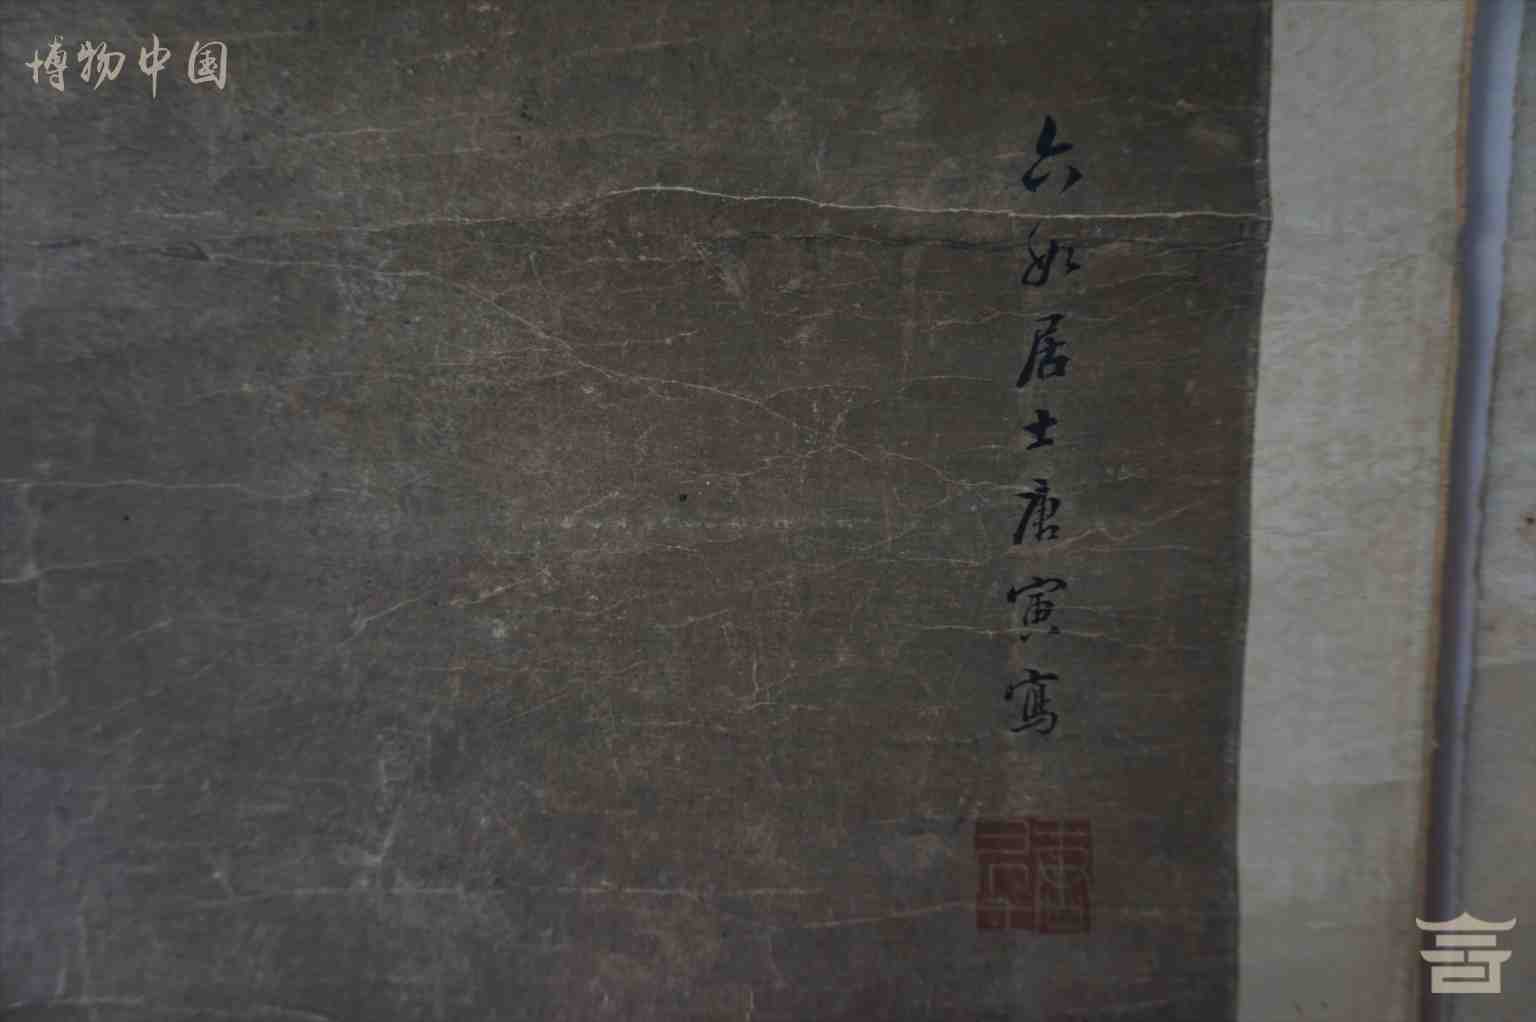 博物中国
六如居士唐寅寫